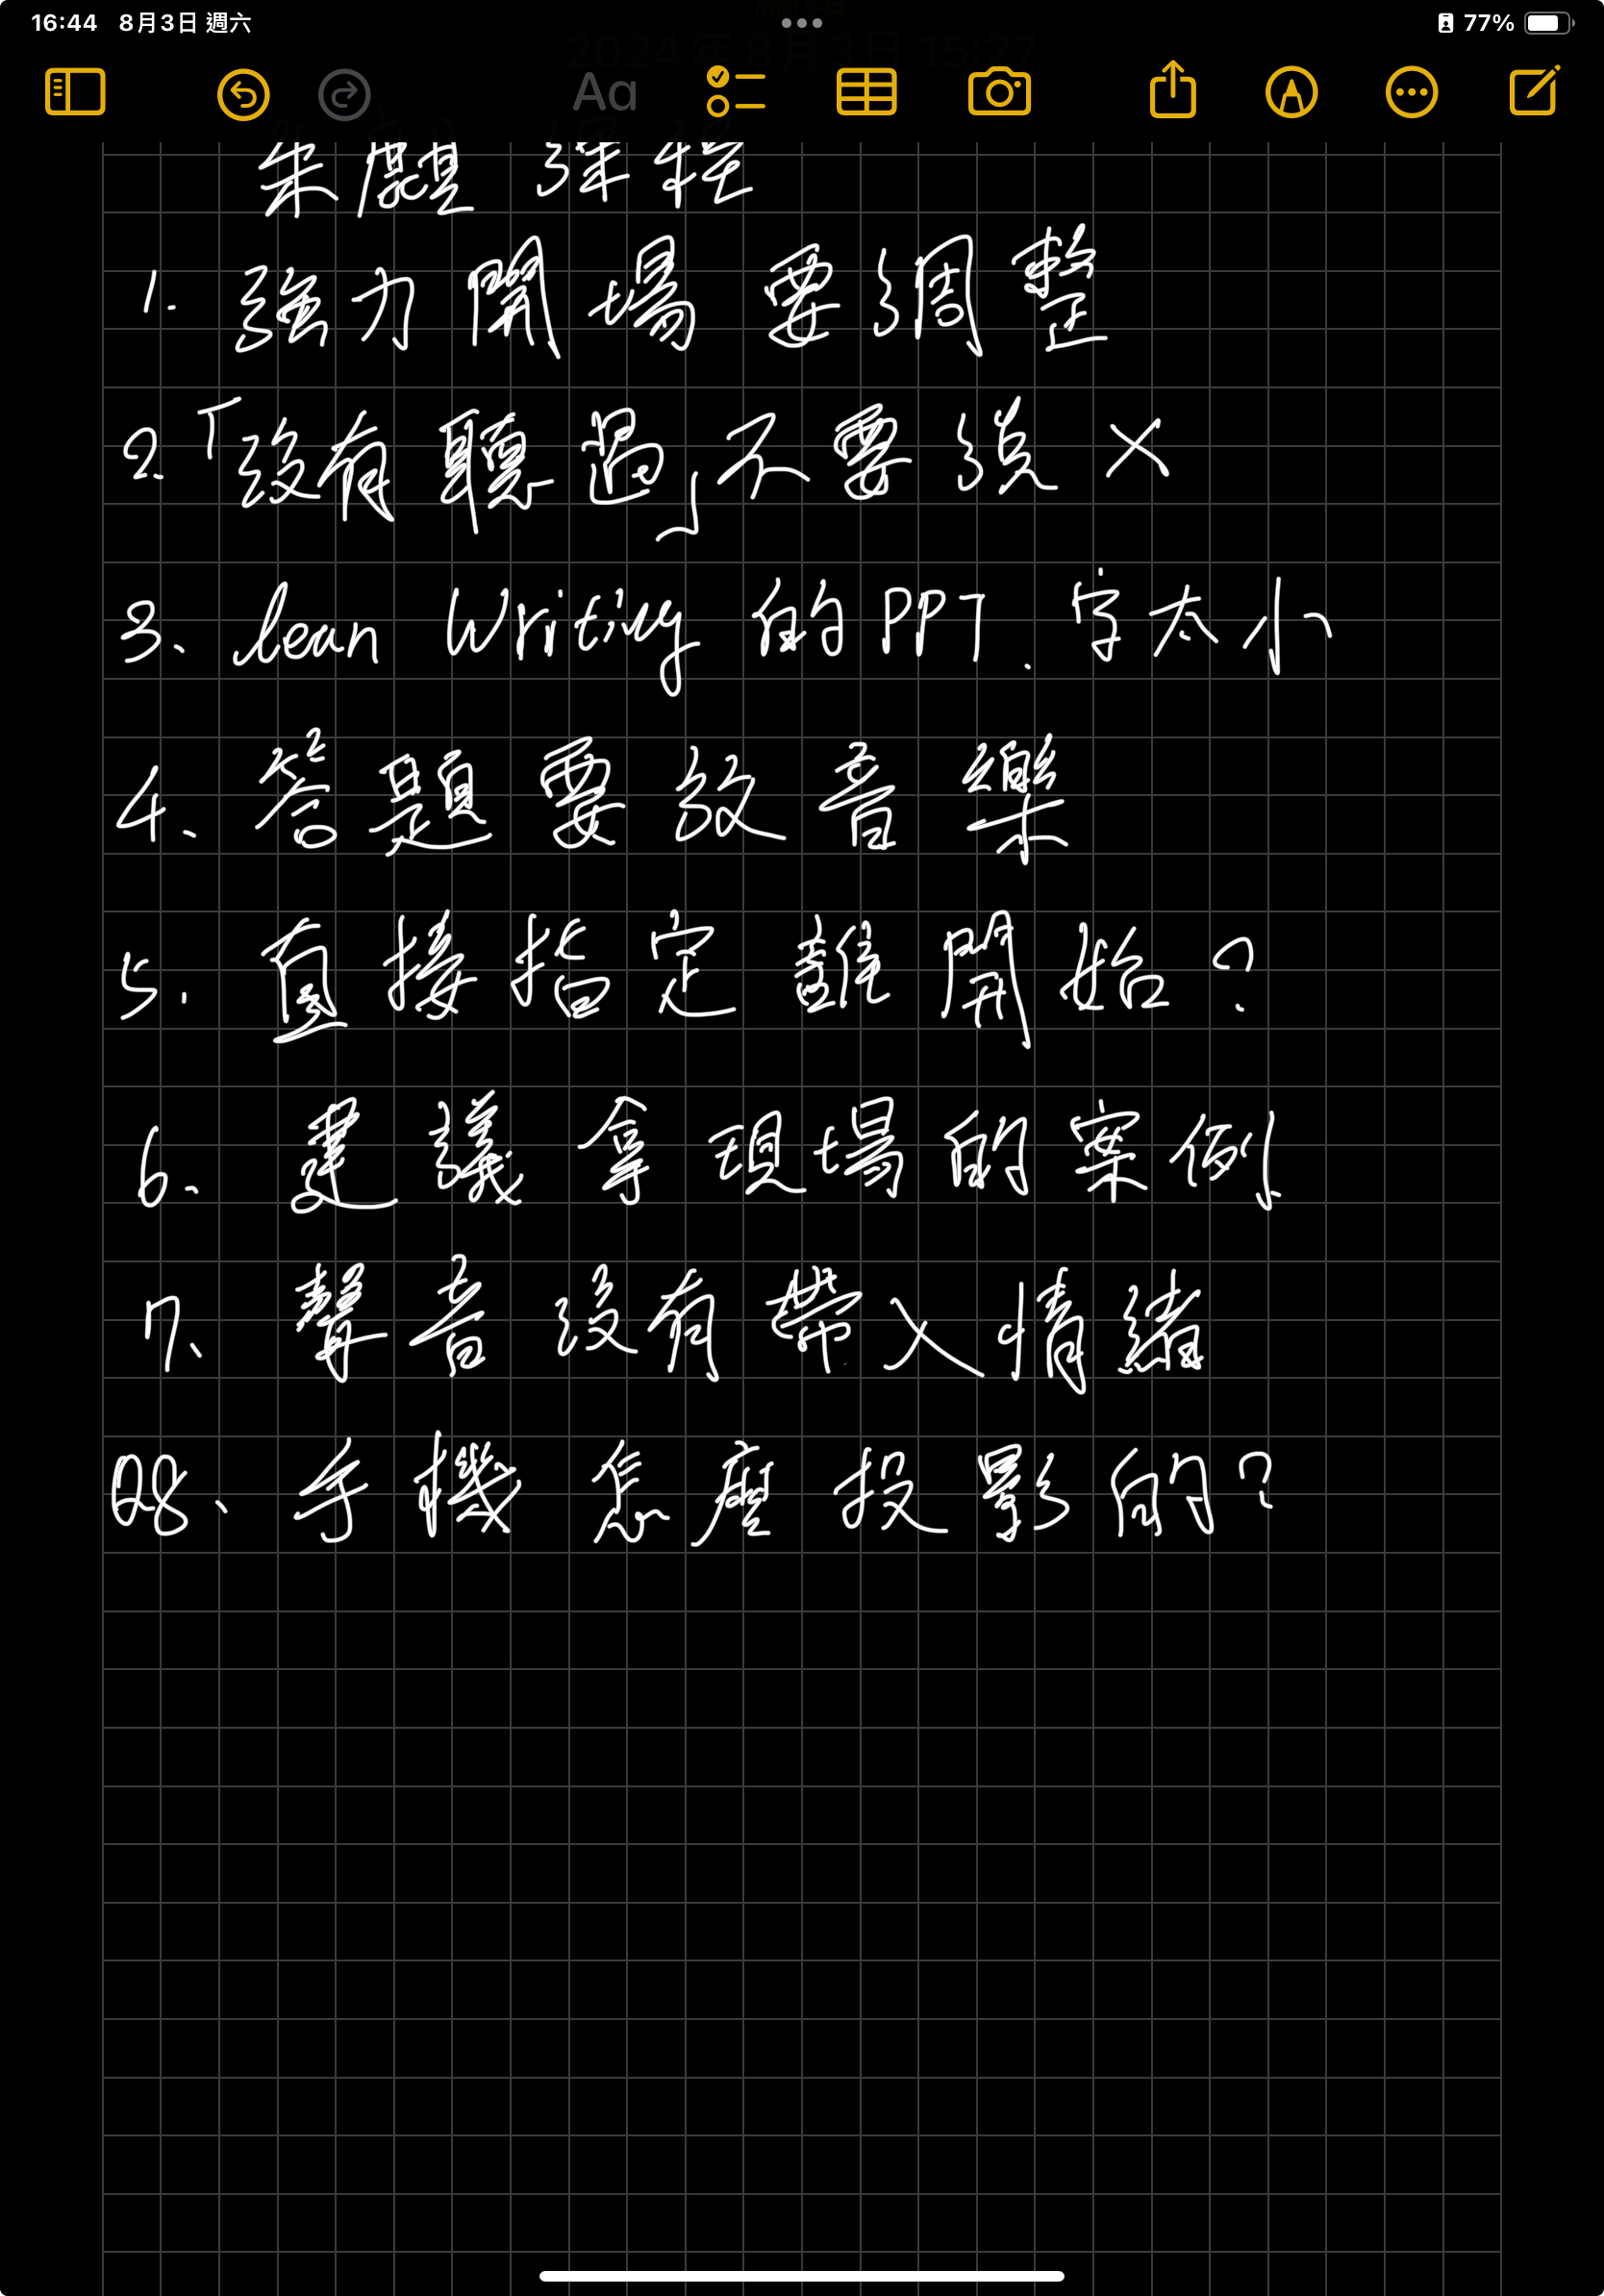 16:44 8月3日 週六 77%
2024年8月3日 15:27
Aa
課程
1. 強力開場要調整
2.「沒有聽過」不要說 X
3、lean Writing 的PPT. 字太小
4、答題要放音樂
5. 直接指定誰開始?
6、建議拿現場的案例
7、聲音沒有帶入情緒
Q8、手機怎麼投影的?